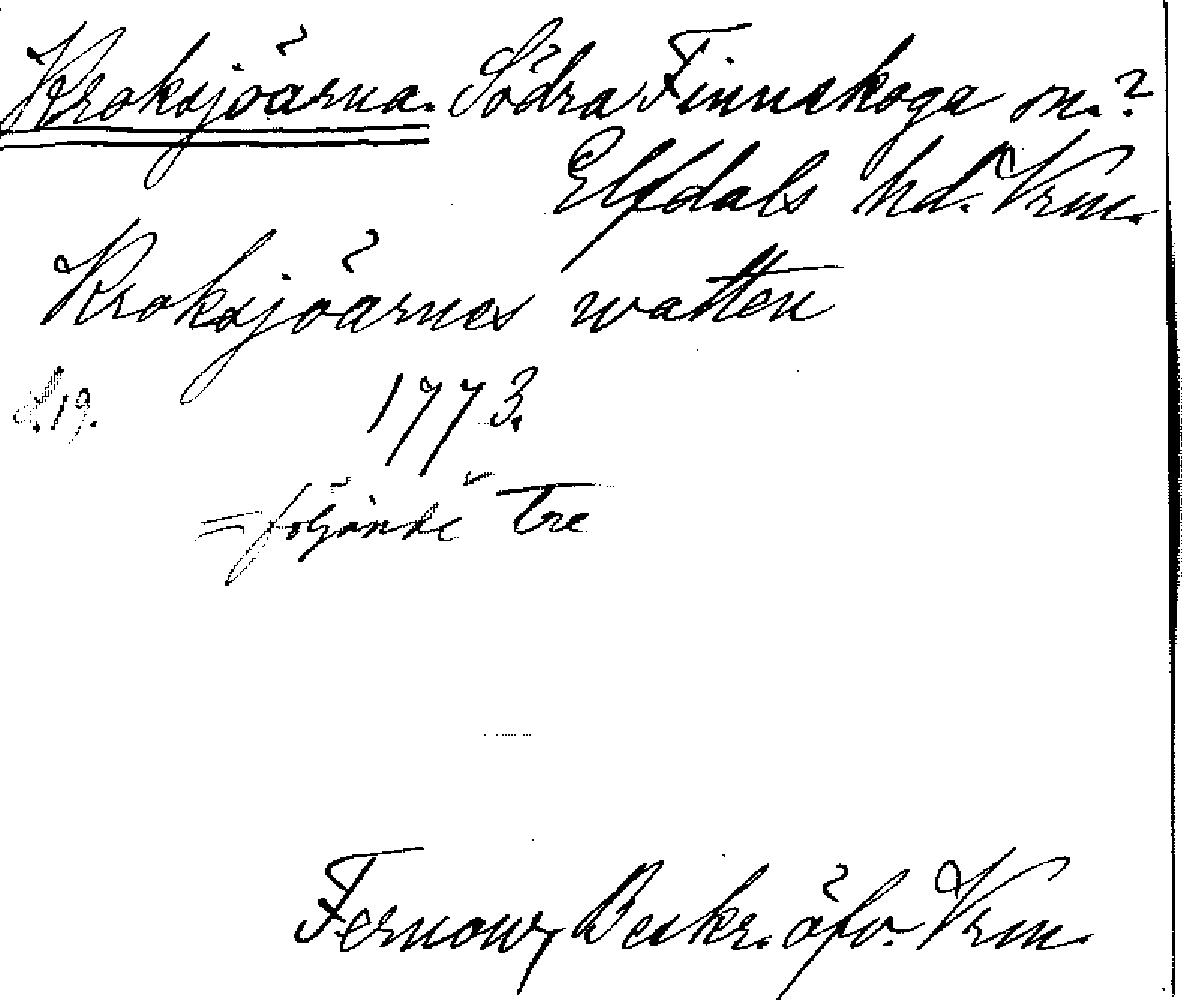 Kroksjöarna. Södra Finnskoga sn.?
Elfdals hd. Vrm.
Kroksjöarnes watten
s. 19. 1773.
= följande tre
Fernow, Beskr. öfv. Vrm.